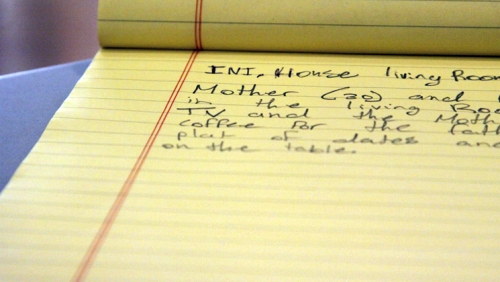 INI, House living Room
Mother (30) and
in the living Roo
TV and the Moth
coffee for the fat
plat of dates and
on the table.